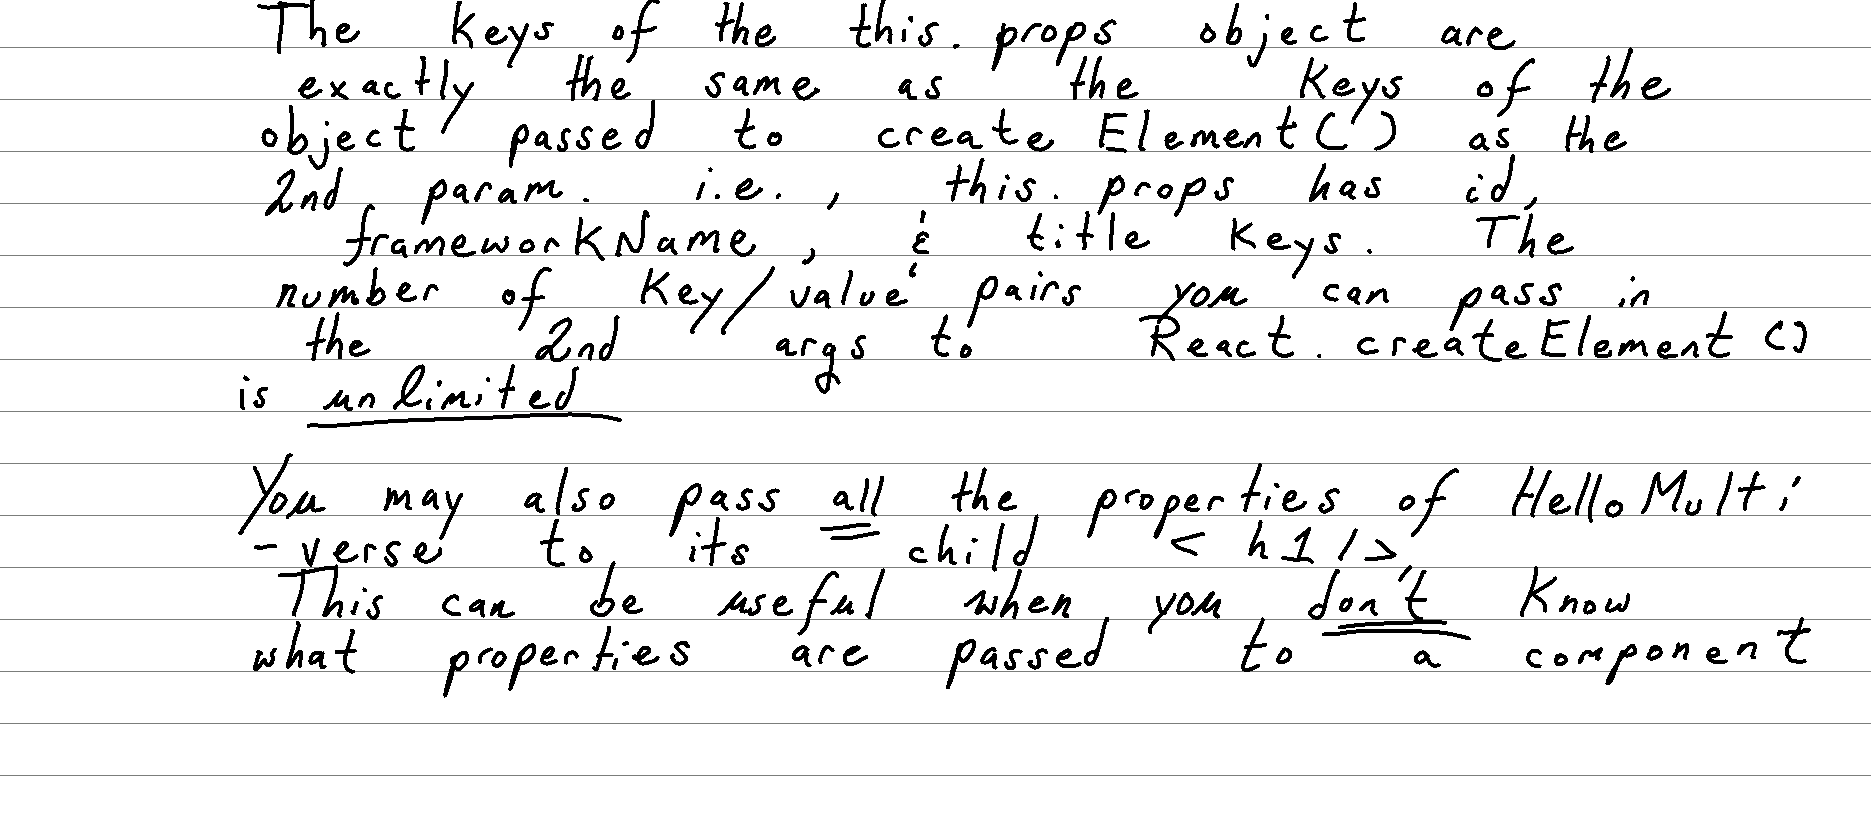 The keys of the this.props object are
exactly the same as the keys of the
object passed to createElement() as the
2nd param. i.e., this.props has id,
frameworkName, & title keys. The
number of key/value pairs you can pass in
the 2nd args to React.createElement()
is unlimited
You may also pass all the properties of HelloMulti
-verse to its child <h1/>
This can be useful when you don't know
what properties are passed to a component